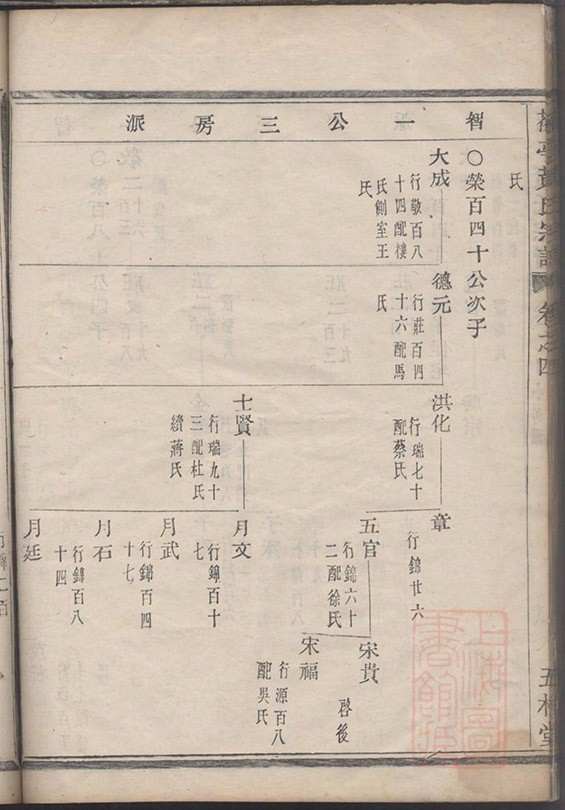 氏
卷之四
五桂堂
智一公三房派
○榮百四十公次子
大成
行敬百八
十四配樓
氏側室王
氏
德元
行莊百四
十六配馬
氏
洪化
行瑞七十
配蔡氏
章
行錦廿六
五官
行錦六十
二配徐氏
宋貴
啓後
宋福
行源百八
配吳氏
士賢
行瑞九十
三配杜氏
續蔣氏
月文
行錦百十
七
月武
行錦百四
十七
月石
行錦百八
十四
月廷
上海圖書館藏